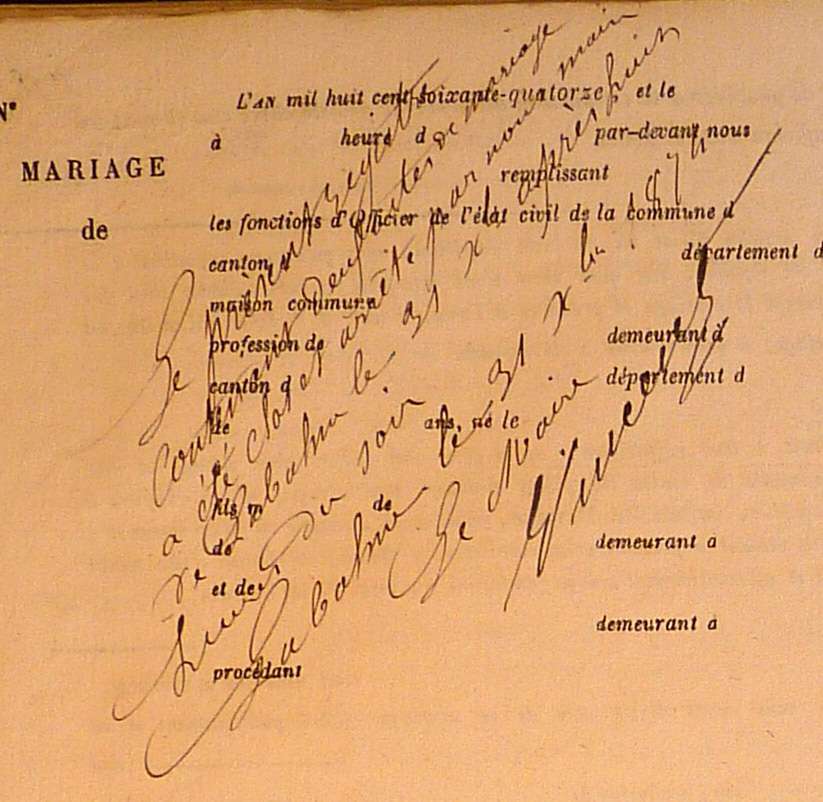 N°
MARIAGE
de
L'AN mil huit cent soixante-quatorze et le
à heure d par-devant nous
remplissant
les fonctions d'Officier de l'état civil de la commune d
canton d département d
maison commune
profession de demeurant à
canton d département d
de ans, né le
à
fils m de
de demeurant à
et de
demeurant à
procédant
Le présent registre
contenant deux actes de mariage
a été clos et arrêté par nous maire
de Labalme le 31 Xbre après huit
heures du soir
Labalme le 31 Xbre 1874
Le Maire